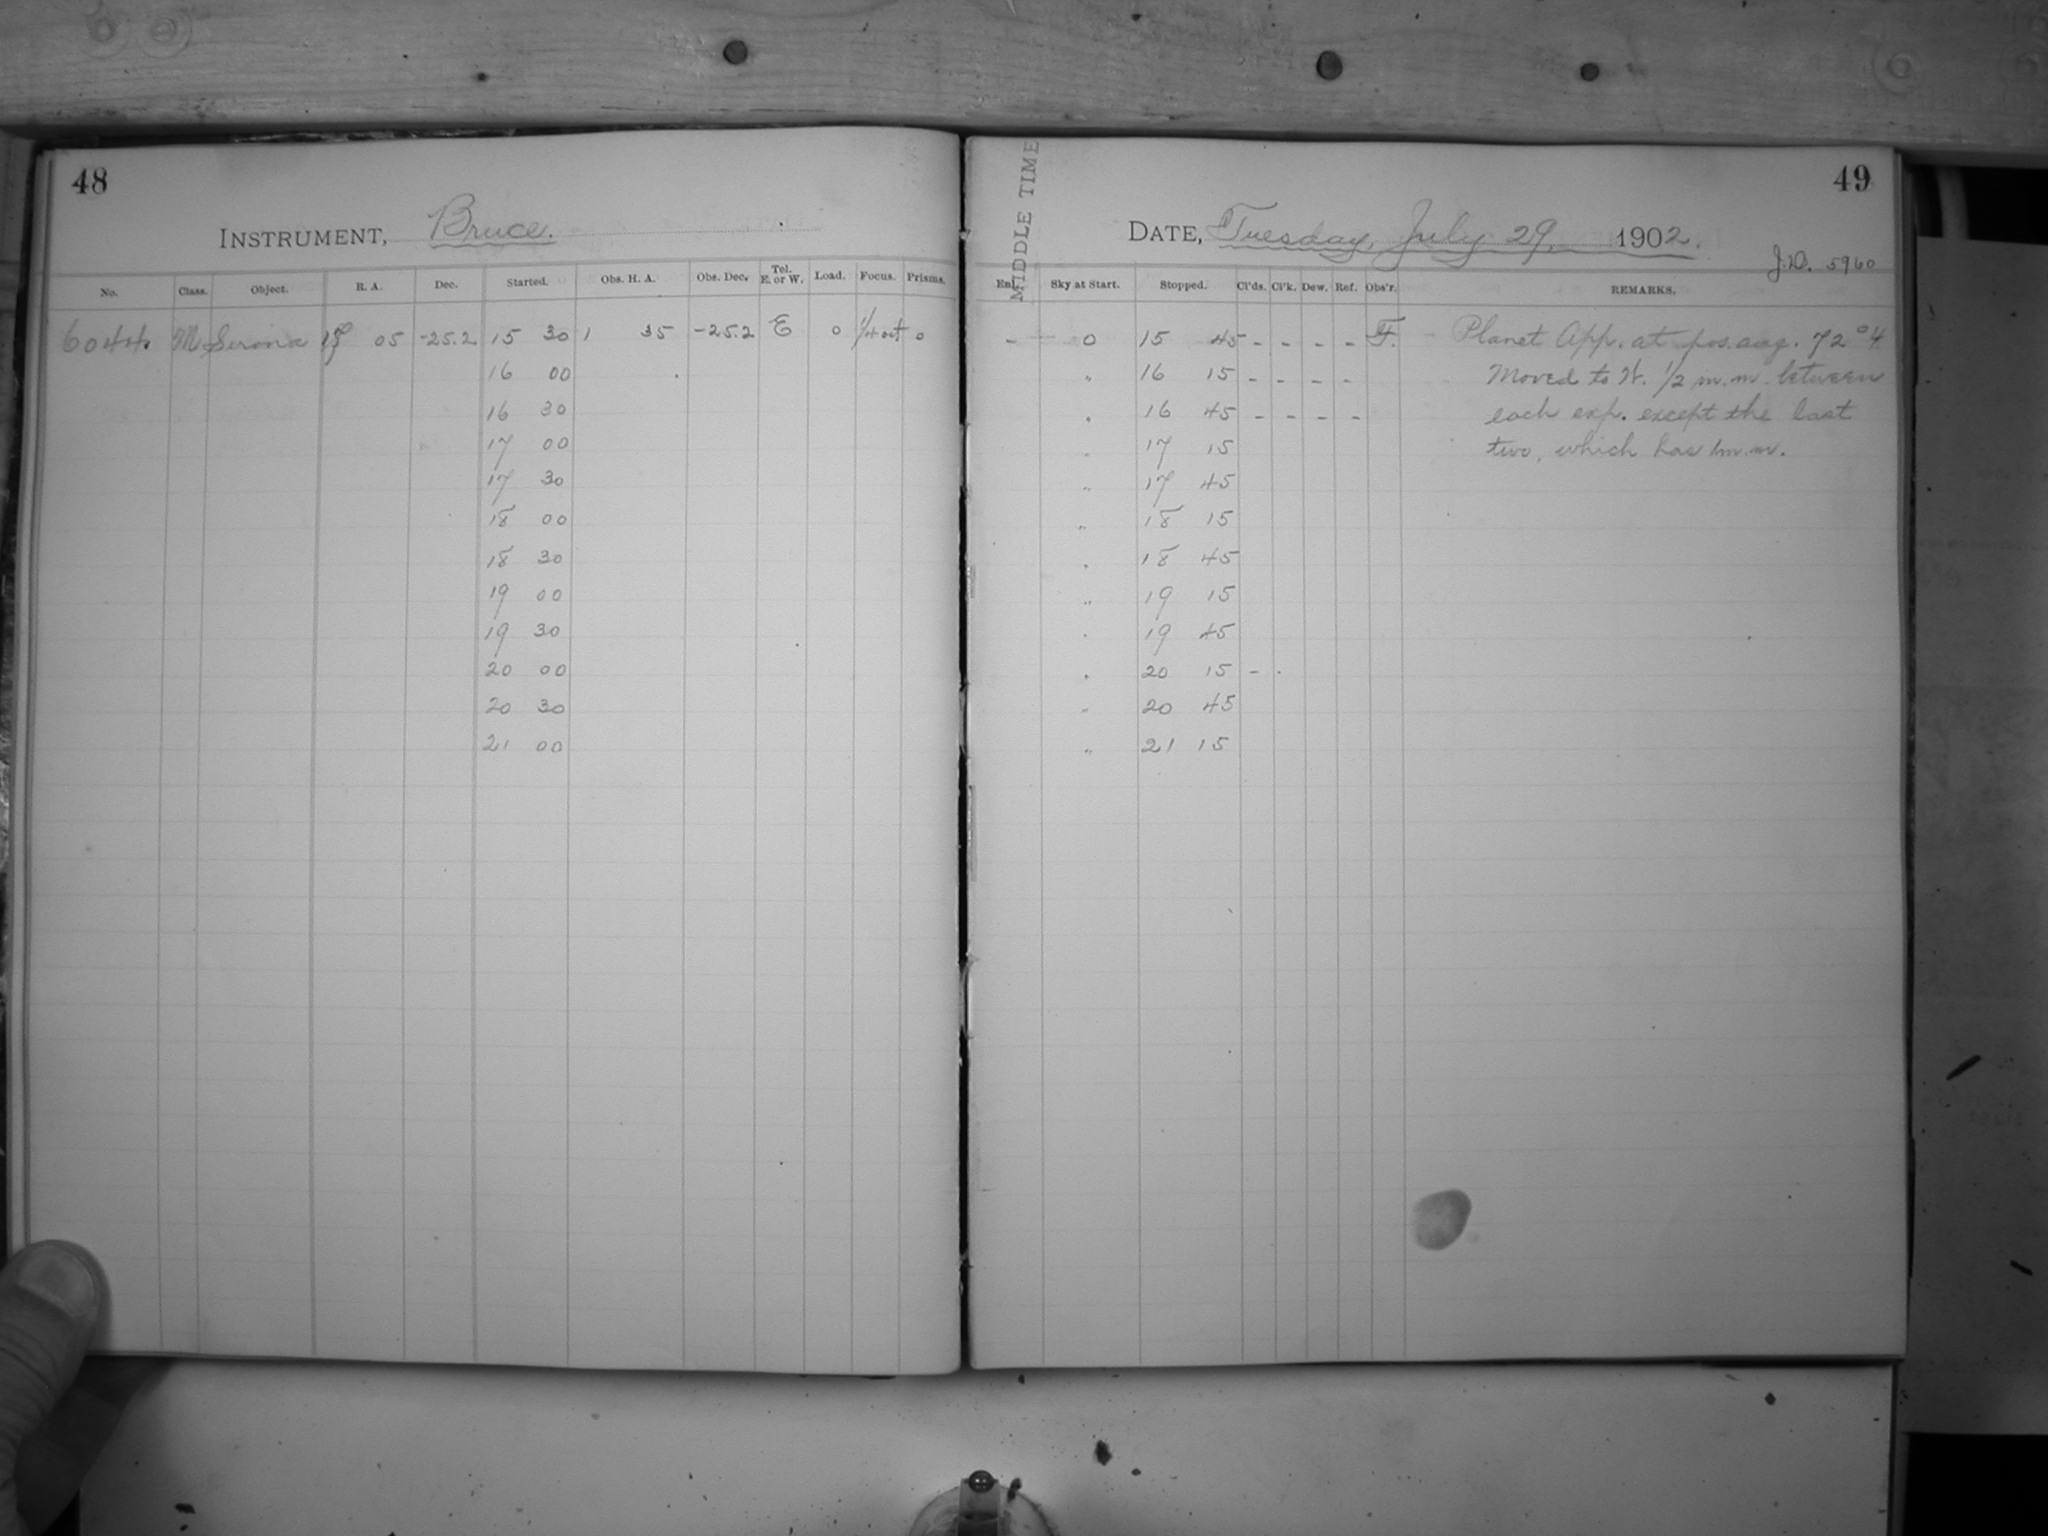 48
INSTRUMENT, Bruce.
No. Class. Object. R. A. Dec. Started. Obs. H. A. Obs. Dec. Tel. E. or W. Load. Focus. Prisms.
6044. M Sirona 05 -25.2 15 30 1 35 -25.2 E 0 1/4 out 0
16 00
16 30
17 00
17 30
18 00
18 30
19 00
19 30
20 00
20 30
21 00
MIDDLE TIME
49
DATE, Tuesday, July 29, 1902.
J.D. 5960
Sky at Start. Stopped. Cl'ds. Cl'k. Dew. Ref. Obs'r. REMARKS.
- 0 15 45 - - - - F. Planet App. at pos. ang. 72°4
" 16 15 - - - - Moved to W. 1/2 m.m. between
" 16 45 - - - - each exp. except the last
" 17 15 two, which has 1m.m.
" 17 45
" 18 15
" 18 45
" 19 15
" 19 45
" 20 15 - -
" 20 45
" 21 15